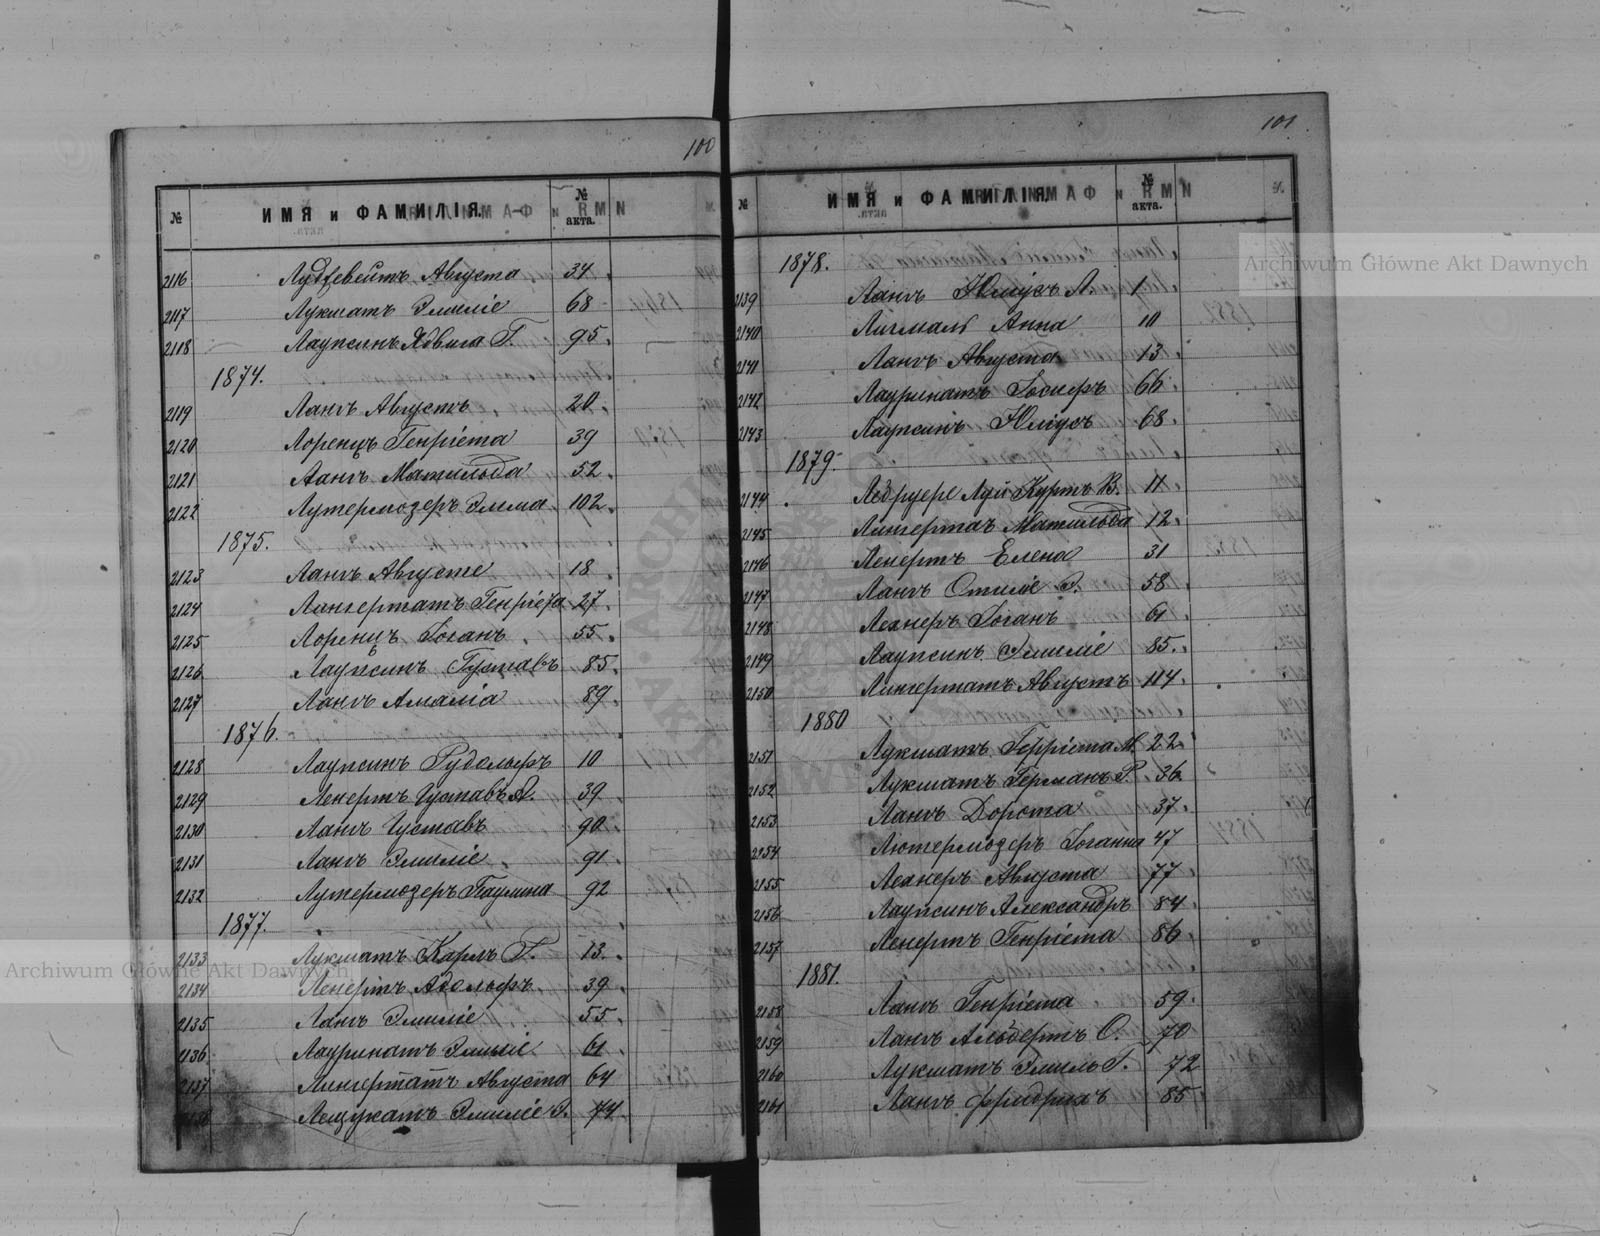 100
№ ИМЯ и ФАМИЛІЯ. № акта.
2116 Лудзевейтъ Августа 34
2117 Лукшатъ Эмиліе 68
2118 Лаупсинъ Ядвига Г. 95
1874.
2119 Лангъ Августъ 20
2120 Лоренцъ Генріета 39
2121 Лангъ Матильда 52
2122 Лутермозеръ Эмма 102
1875.
2123 Лангъ Августе 18
2124 Лингертатъ Генріета 27
2125 Лоренцъ Іоганъ 55
2126 Лаупсинъ Густавъ 85
2127 Лангъ Амалія 89
1876.
2128 Лаупсинъ Рудольфъ 10
2129 Ленертъ Густавъ А. 39
2130 Лангъ Густавъ 90
2131 Лангъ Эмиліе 91
2132 Лутермозеръ Паулина 92
1877.
2133 Лукшатъ Карлъ Г. 13
2134 Ленертъ Адольфъ 39
2135 Лангъ Эмиліе 55
2136 Лауринатъ Эмиліе 61
2137 Лингертатъ Августа 64
2138 Лешукатъ Эмиліе 74
101
№ ИМЯ и ФАМИЛІЯ № акта.
1878.
2139 Лангъ Юліусъ Л. 1
2140 Анна 10
2141 Лангъ Августа 13
2142 Лауринатъ Іосифъ 66
2143 Лаупсинъ Юліусъ 68
1879.
2144 Луи Куртъ В. 11
2145 Лингертатъ Матильда 12
2146 Ленертъ Елена 31
2147 Лангъ Отиліе Э. 58
2148 Лехнеръ Іоганъ 61
2149 Лаупсинъ Эмиліе 85
2150 Лингертатъ Августъ 114
1880
2151 Лукшатъ 22
2152 Лукшатъ Германъ Р. 36
2153 Лангъ Дорота 37
2154 Лютермозеръ Іоганна 47
2155 Лехнеръ Августа 77
2156 Лаупсинъ Александръ 84
2157 Ленертъ Генріета 86
1881.
2158 Лангъ Генріета 59
2159 Лангъ Альбертъ О. 70
2160 Лукшатъ Эмиль Г. 72
2161 Лангъ Фридрихъ 85
Archiwum Główne Akt Dawnych
Archiwum Główne Akt Dawnych